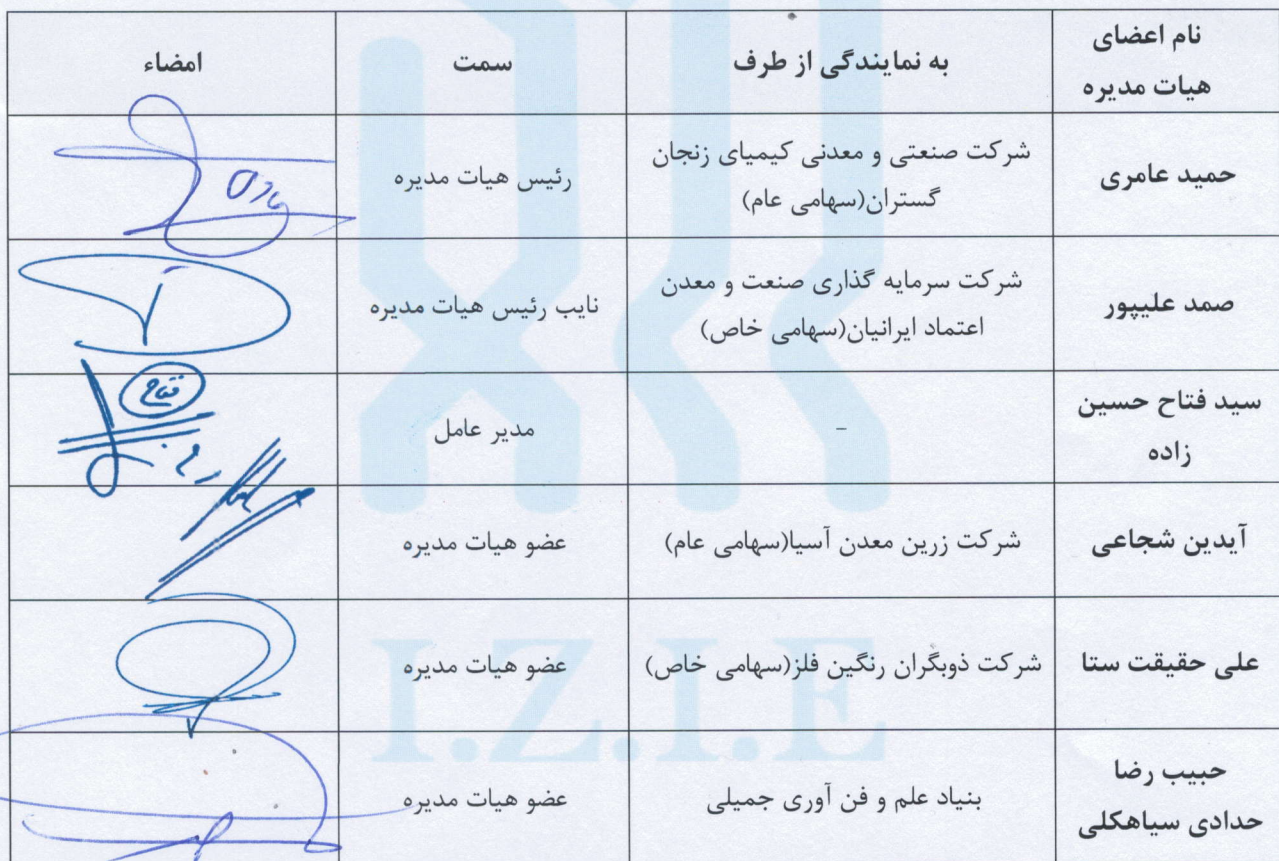 نام اعضای
هیات مدیره
به نمایندگی از طرف
سمت
امضاء
حمید عامری
شرکت صنعتی و معدنی کیمیای زنجان
گستران(سهامی عام)
رئیس هیات مدیره
صمد علیپور
شرکت سرمایه گذاری صنعت و معدن
اعتماد ایرانیان(سهامی خاص)
نایب رئیس هیات مدیره
سید فتاح حسین
زاده
-
مدیر عامل
فتاح
آیدین شجاعی
شرکت زرین معدن آسیا(سهامی عام)
عضو هیات مدیره
علی حقیقت ستا
شرکت ذوبگران رنگین فلز(سهامی خاص)
عضو هیات مدیره
حبیب رضا
حدادی سیاهکلی
بنیاد علم و فن آوری جمیلی
عضو هیات مدیره
I.Z.I.E